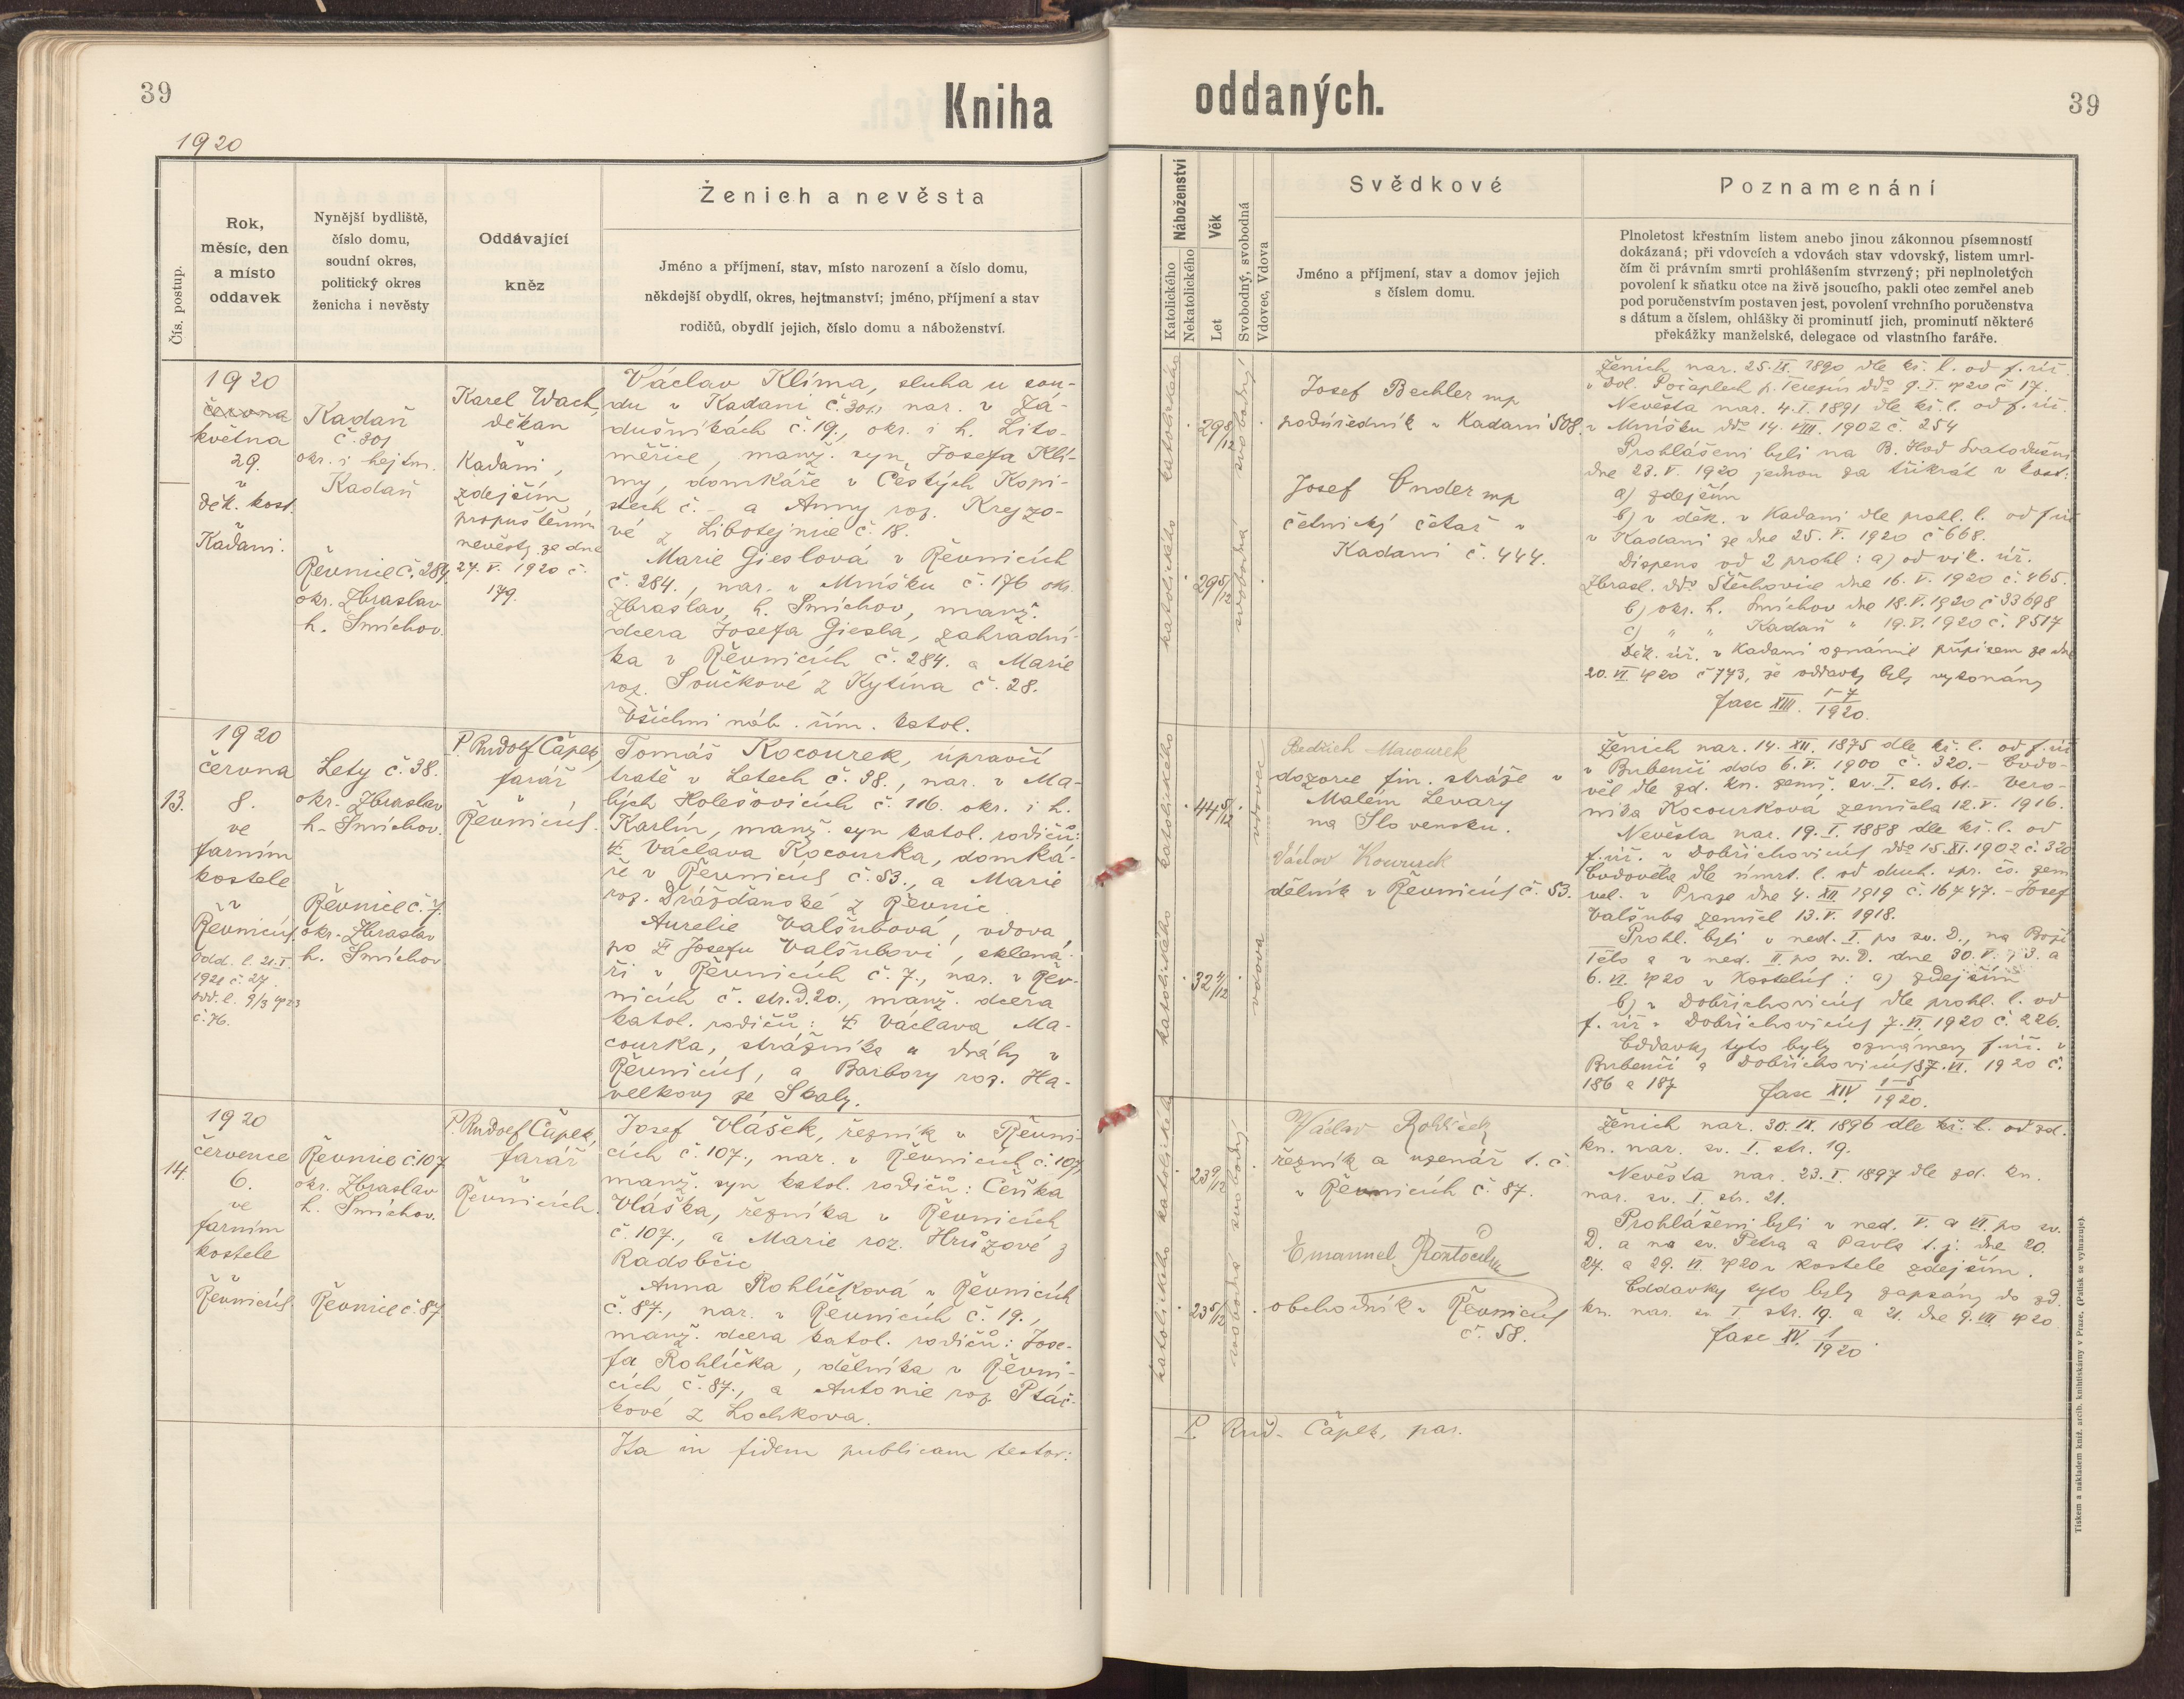 39
Kniha
oddaných.
39
1920
Čís. postup.
Rok,
měsíc, den
a místo
oddavek
Nynější bydliště,
číslo domu,
soudní okres,
politický okres
ženicha i nevěsty
Oddávající
kněz
Ženich a nevěsta
Jméno a příjmení, stav, místo narození a číslo domu,
někdejší obydlí, okres, hejtmanství; jméno, příjmení a stav
rodičů, obydlí jejich, číslo domu a náboženství.
Náboženství
Katolického
Nekatolického
Věk
Let
Svobodný, svobodná
Vdovec, Vdova
Svědkové
Jméno a příjmení, stav a domov jejich
s číslem domu.
Poznamenání
Plnoletost křestním listem anebo jinou zákonnou písemností
dokázaná; při vdovcích a vdovách stav vdovský, listem umrl-
čím či právním smrti prohlášením stvrzený; při neplnoletých
povolení k sňatku otce na živě jsoucího, pakli otec zemřel aneb
pod poručenstvím postaven jest, povolení vrchního poručenstva
s dátum a číslem, ohlášky či prominutí jich, prominutí některé
překážky manželské, delegace od vlastního faráře.
1920
června
května
29.
v
děk. kost.
Kadani.
Kadaň
č. 301
okr. i hejtm.
Kadaň
Řevnice č. 284.
okr. Zbraslav
h. Smíchov.
Karel Wach,
děkan
v
Kadani,
zdejším
propuštěním
nevěsty ze dne
27. V. 1920 č.
179.
Václav Klíma, sluha u sou-
du v Kadani č. 301, nar. v Zá-
dušníkách č. 19., okr. i h. Lito-
měřice, manž. syn Josefa Klí-
my, domkáře v Čestých Kopi-
stech č. - a Anny roz. Krejzo-
vé z Libotejnic č. 18.
Marie Gieslová v Řevnicích
č. 284., nar. v Mníšku č. 176 okr.
Zbraslav, h. Smíchov, manž.
dcera Josefa Giesla, zahradní-
ka v Řevnicích č. 284. a Marie
roz. Součkové z Kytína č. 28.
Všichni náb. řím. katol.
katolického
29 8/12
svobodný
katolického
29 5/12
svobodná
Josef Bechler mp
podúředník v Kadani 508.
Josef Onder mp
četnický četař v
Kadani č. 444.
Ženich nar. 25. IX. 1890 dle kř. l. od f. úř.
v Dol. Počaplech p. Terezín ddo 9. I. 1920 č. 17.
Nevěsta nar. 4. I. 1891 dle kř. l. od f. úř.
v Mníšku ddo 14. VIII. 1902 č. 254
Prohlášeni byli na B. Hod Svatodušní
dne 23. V. 1920 jednou za třikrát v kost:
a) zdejším
b) v děk. v Kadani dle prohl. l. od f. úř
v Kadani ze dne 25. V. 1920 č 668.
Dispens od 2 prohl: a) od vik. úř.
Zbrasl. ddo Štěchovice dne 16. V. 1920 č. 465.
b) okr. h. Smíchov dne 18. V. 1920 č 33698
c) " " Kadaň " 19. V. 1920 č. 9517
Děk. úř. v Kadani oznámil přípisem ze dne
20. VI 1920 č 773, že oddavky byly vykonány
fasc XIII. 1-7/1920.
13.
1920
června
8.
ve
farním
kostele
v
Řevnicích
Odd. l. 21. I.
1921 č. 27.
odd. l. 9/3 1923
č. 76.
Lety č. 38.
okr. Zbraslav
h. Smíchov.
Řevnice č. 7.
okr. Zbraslav
h. Smíchov
P. Rudolf Čápek,
farář
v
Řevnicích.
Tomáš Kocourek, úpravčí
tratě v Letech č. 38., nar. v Ma-
lých Holešovicích č. 116. okr. i h.
Karlín, manž. syn katol. rodičů:
Václava Kocourka, domká-
ře v Řevnicích č. 53., a Marie
roz. Drážďanské z Řevnic
Aurelie Valšubová, vdova
po Josefu Valšubovi, sklená-
ři v Řevnicích č. 7., nar. v Řev-
nicích č. str. d. 20., manž. dcera
katol. rodičů: Václava Ma-
courka, strážníka u dráhy v
Řevnicích, a Barbory roz. Ha-
velkovy ze Skály.
katolického
44 5/12
vdovec
katolického
32 4/12
vdova
Bedřich Macourek
dozorce fin. stráže v
Malém Levary
na Slovensku.
Václav Kocourek
dělník v Řevnicích č. 53.
Ženich nar. 14. XII. 1875 dle kř. l. od f. úř
v Bubenči ddo 6. V. 1900 č. 320.- Ovdo-
věl dle zd. kn. zemř. sv. I. str. 61.- Vero-
nika Kocourková zemřela 12. V. 1916.
Nevěsta nar. 19. I. 1888 dle kř. l. od
f. úř. v Dobřichovicích ddo 15. XI. 1902 č. 320
Ovdověla dle úmrt. l. od duch. spr. čs. zem
vel. v Praze dne 4. XII 1919 č. 16447. - Josef
Valšuba zemřel 13. V. 1918.
Prohl. byli v ned. I. po sv. D., na Boží
Tělo a v ned. II po sv. D. dne 30. V. 3. a
6. VI. 1920 v kostelích: a) zdejším
b) v Dobřichovicích dle prohl. l. od
f. úř v Dobřichovicích 7. VI. 1920 č. 226.
Oddavky tyto byly oznámeny f. úř. v
Bubenči a Dobřichovicích 87. VI. 1920 č.
186 a 187
fasc XIV 1-5/1920.
14.
1920
července
6.
ve
farním
kostele
v
Řevnicích
Řevnice č. 107
okr. Zbraslav
h. Smíchov.
Řevnice č. 87
P. Rudolf Čápek,
farář
v
Řevnicích.
Josef Vlášek, řezník v Řevni-
cích č. 107., nar. v Řevnicích č. 107,
manž. syn katol. rodičů: Čeňka
Vláška, řezníka v Řevnicích
č. 107., a Marie roz. Hrůzové z
Radobčic
Anna Rohlíčková v Řevnicích
č. 87., nar. v Řevnicích č. 19.,
manž. dcera katol. rodičů: Jose-
fa Rohlíčka, dělníka v Řevni-
cích č. 87., a Antonie roz. Ptáč-
kové z Lochkova.
katolického
23 9/12
svobodný
katolického
23 5/12
svobodná
Václav Rohlíček
řezník a uzenář t. č.
v Řevnicích č. 87.
Emanuel
obchodník v Řevnicích
č. 58.
Ženich nar. 30. IX. 1896 dle kř. l. od zd.
kn. nar. sv. I. str. 19.
Nevěsta nar. 23. I. 1897 dle zd. kn.
nar. sv. I. str. 21.
Prohlášeni byli v ned. V. a VI. po sv.
D. a na sv. Petra a Pavla t. j. dne 20.
27. a 29. VI. 1920 v kostele zdejším.
Oddavky tyto byly zapsány do zd.
kn. nar. sv I. str. 19. a 21. dne 9. VII 1920
fasc XV. 1/1920.
Ita in fidem publicam testor:
P. Rud. Čápek, par.
Tiskem a nákladem kníž. arcib. knihtiskárny v Praze. (Patisk se vyhrazuje).